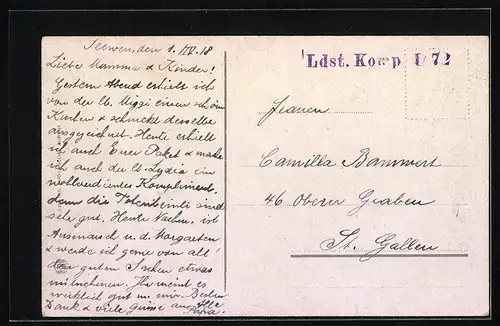 Seewen, den 1. IV. 18
Liebe Mamma & Kinder!
Gestern Abend erhielt ich
von der lb. Miggi einen schönen
Kuchen & schmeckt derselbe
ausgezeichnet. Heute erhielt
ich auch Euer Paket & mache
ich auch der lb. Lydia ein
wohlverdientes Kompliment,
denn die Totenbeinli sind
sehr gut. Heute Nachm. ist
Ausmarsch n. d. Morgarten
& werde ich gerne von all'
den guten Sachen etwas
mitnehmen. Ihr meint es
wirklich gut m. mir. Besten
Dank & viele Grüsse an Alle
Papa.
Ldst. Komp. 72
Frauen
Camilla Bannwart
46 Oberer Graben
St. Gallen